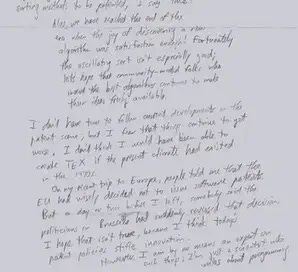 sorting methods to be patented, I say
Alas, we have reached the end of the
era when the joy of discovering a new
algorithm was satisfaction enough! Fortunately
the oscillating sort isn't especially good;
let's hope that community-minded folks who
invent the best algorithms continue to make
their ideas freely available.
I don't have time to follow current developments in the
patent scene, but I fear that things continue to get
worse. I don't think I would have been able to
create TEX if the present climate had existed
in the 1970s.
On my recent trip to Europe, people told me that the
EU had wisely decided not to issue software patents.
But a day or two before I left, somebody said the
politicians in Brussels had suddenly reversed that decision.
I hope that isn't true, because I think today's
patent policies stifle innovation.
However, I am by no means an expert on
such things; I'm just a scientist who
writes about programming